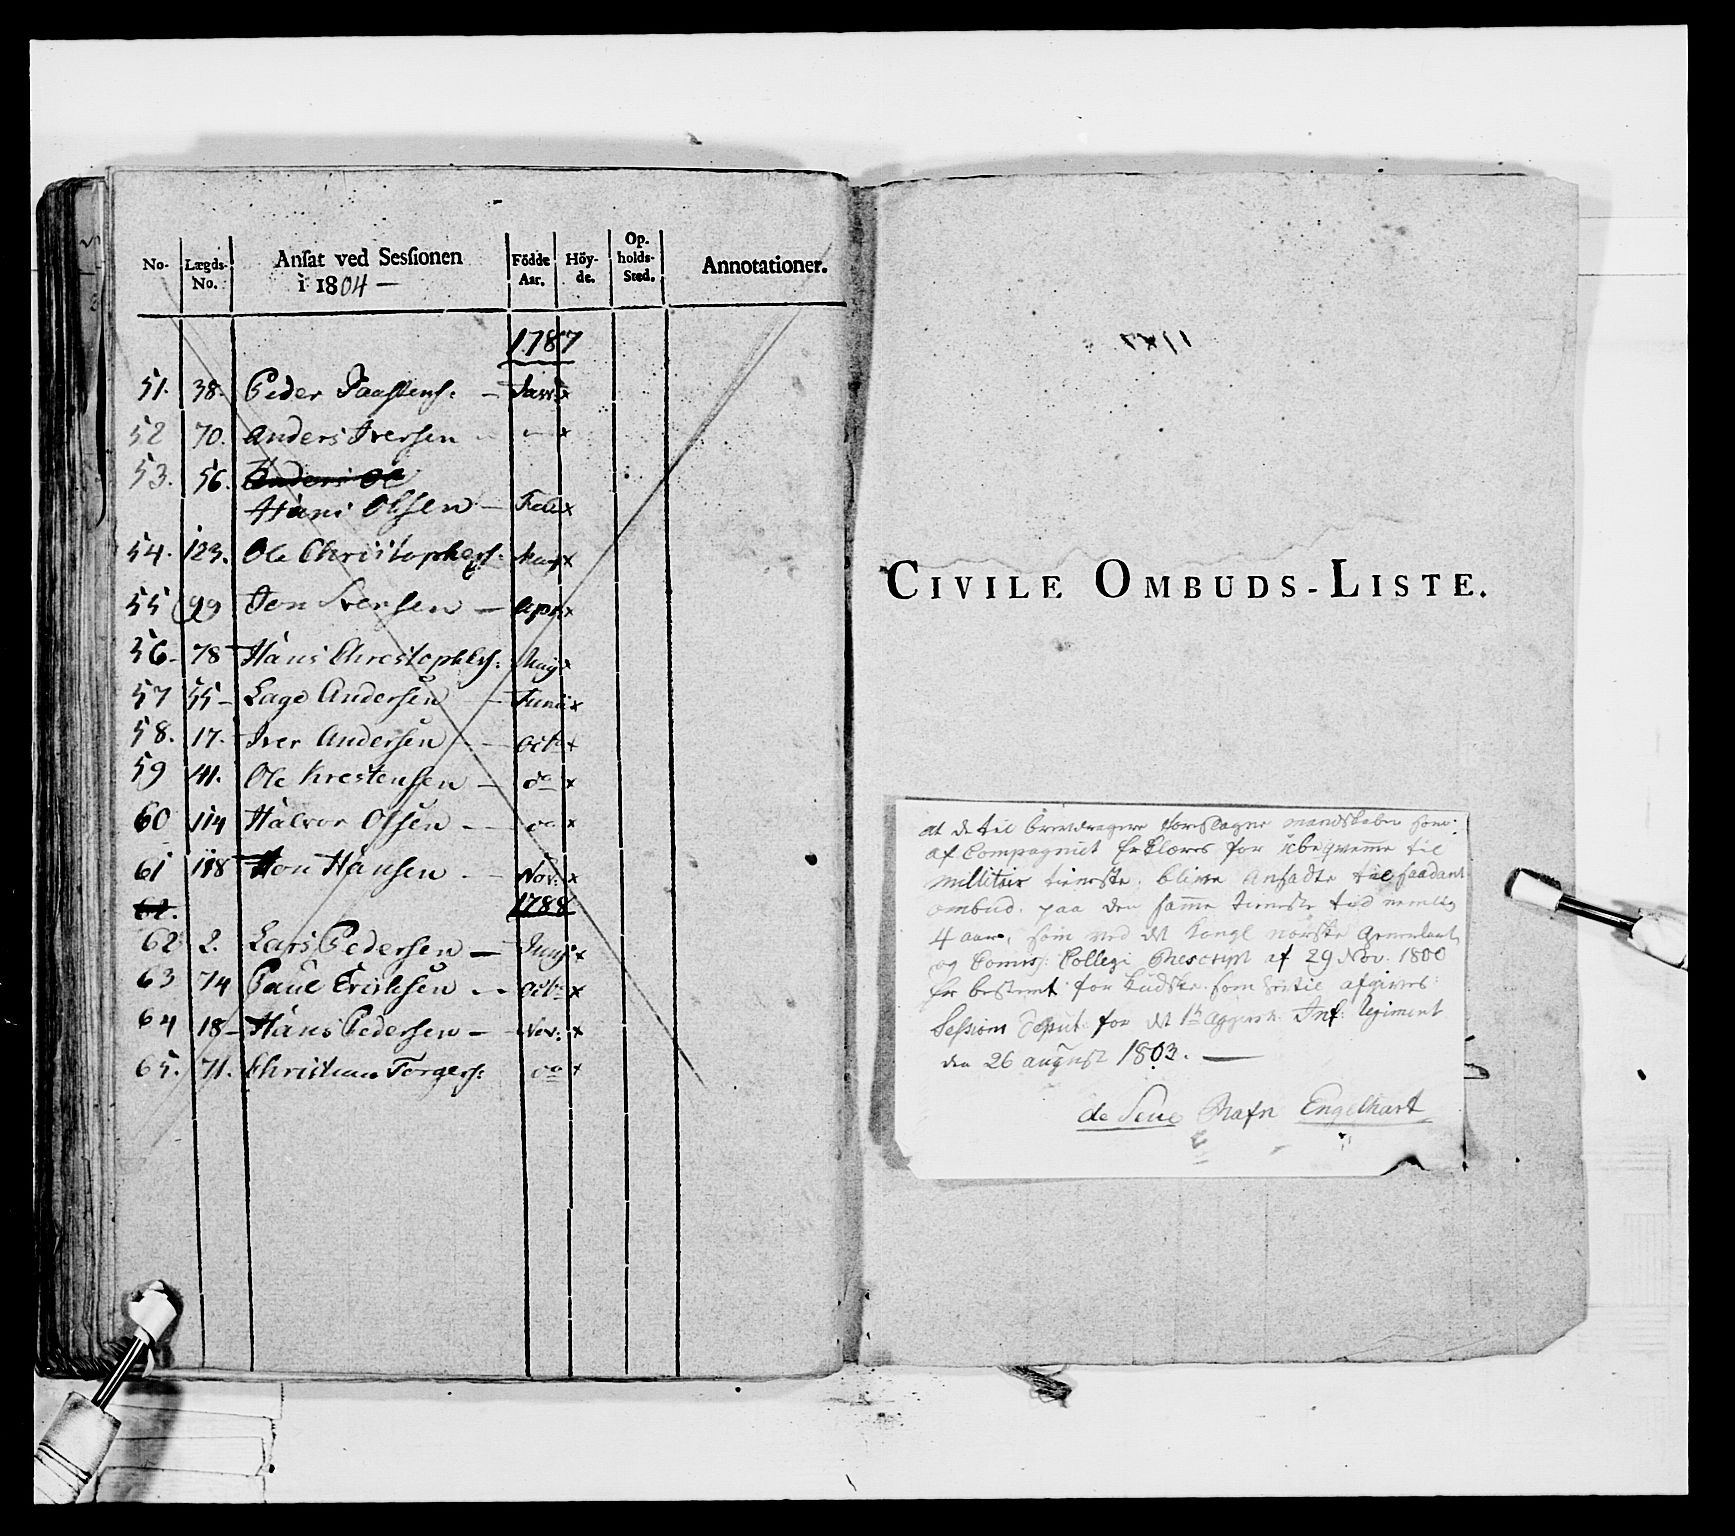 No. Lægds-No. Ansat ved Sessionen i 1804 — Födde Aar. Höy-de. Op-holds-Sted. Annotationer.
1787
51. 38. Peder Paastens: — Janr x
52 70. Anders Iversen - - x
53. 56. Anders Ol
Hans Olsen — Feb x
54. 123. Ole Christophers: Mart x
55 99 Jon Iversen — Apr x
56. 78 Hans Christophers: Maij x
57 55 — Lage Andersen — Junii x
58. 17. Iver Andersen — Octb x
59 41. Ole Krestensen — do x
60 114 Halvor Olsen — do x
61 118 Jon Hansen — Nov: x
62.
1788
62 2. Lars Pedersen — Junij x
63 74 Paul Erichsen - - Octb x
64 18 — Hans Pedersen — Nov: x
65. 71. Christian Torgers: do x
CIVILE OMBUDS-LISTE.
at de til brevdragere foreslagne mandskaber som
af Compagniet Erklæres for ubeqvemme til
militair tieneste, blive ansadte til saadant
ombud. paa den samme tieneste tid nemlig
4 aar, som ved det kongl norske General
og Comiss: Collegi Rescript af 29 Nov. 1800
Er bestemt for kudske som hertil afgives:
Sessions Deput: for det 1te Aggersh: Inf: Regiment
den 26 august 1803. —
de Seue Rafn Engelhart